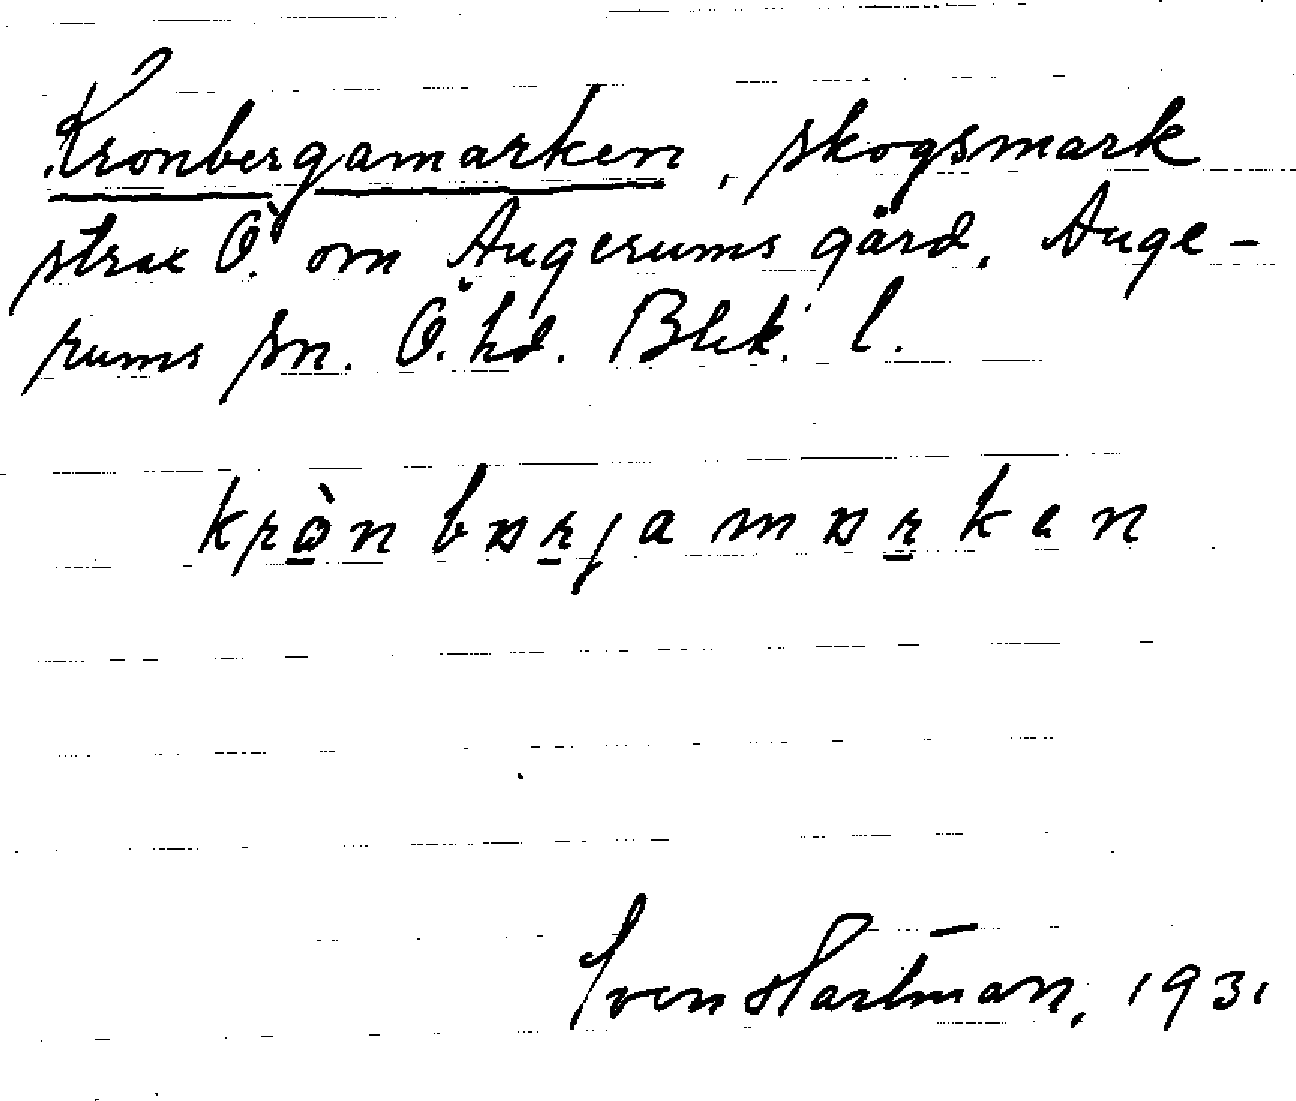 Kronbergamarken, skogsmark
strax Ö. om Augerums gård, Auge-
rums sn. Ö. hd. Blek. l.
krò̱nbɒṟjamɒṟken
Sven Hartman, 1931